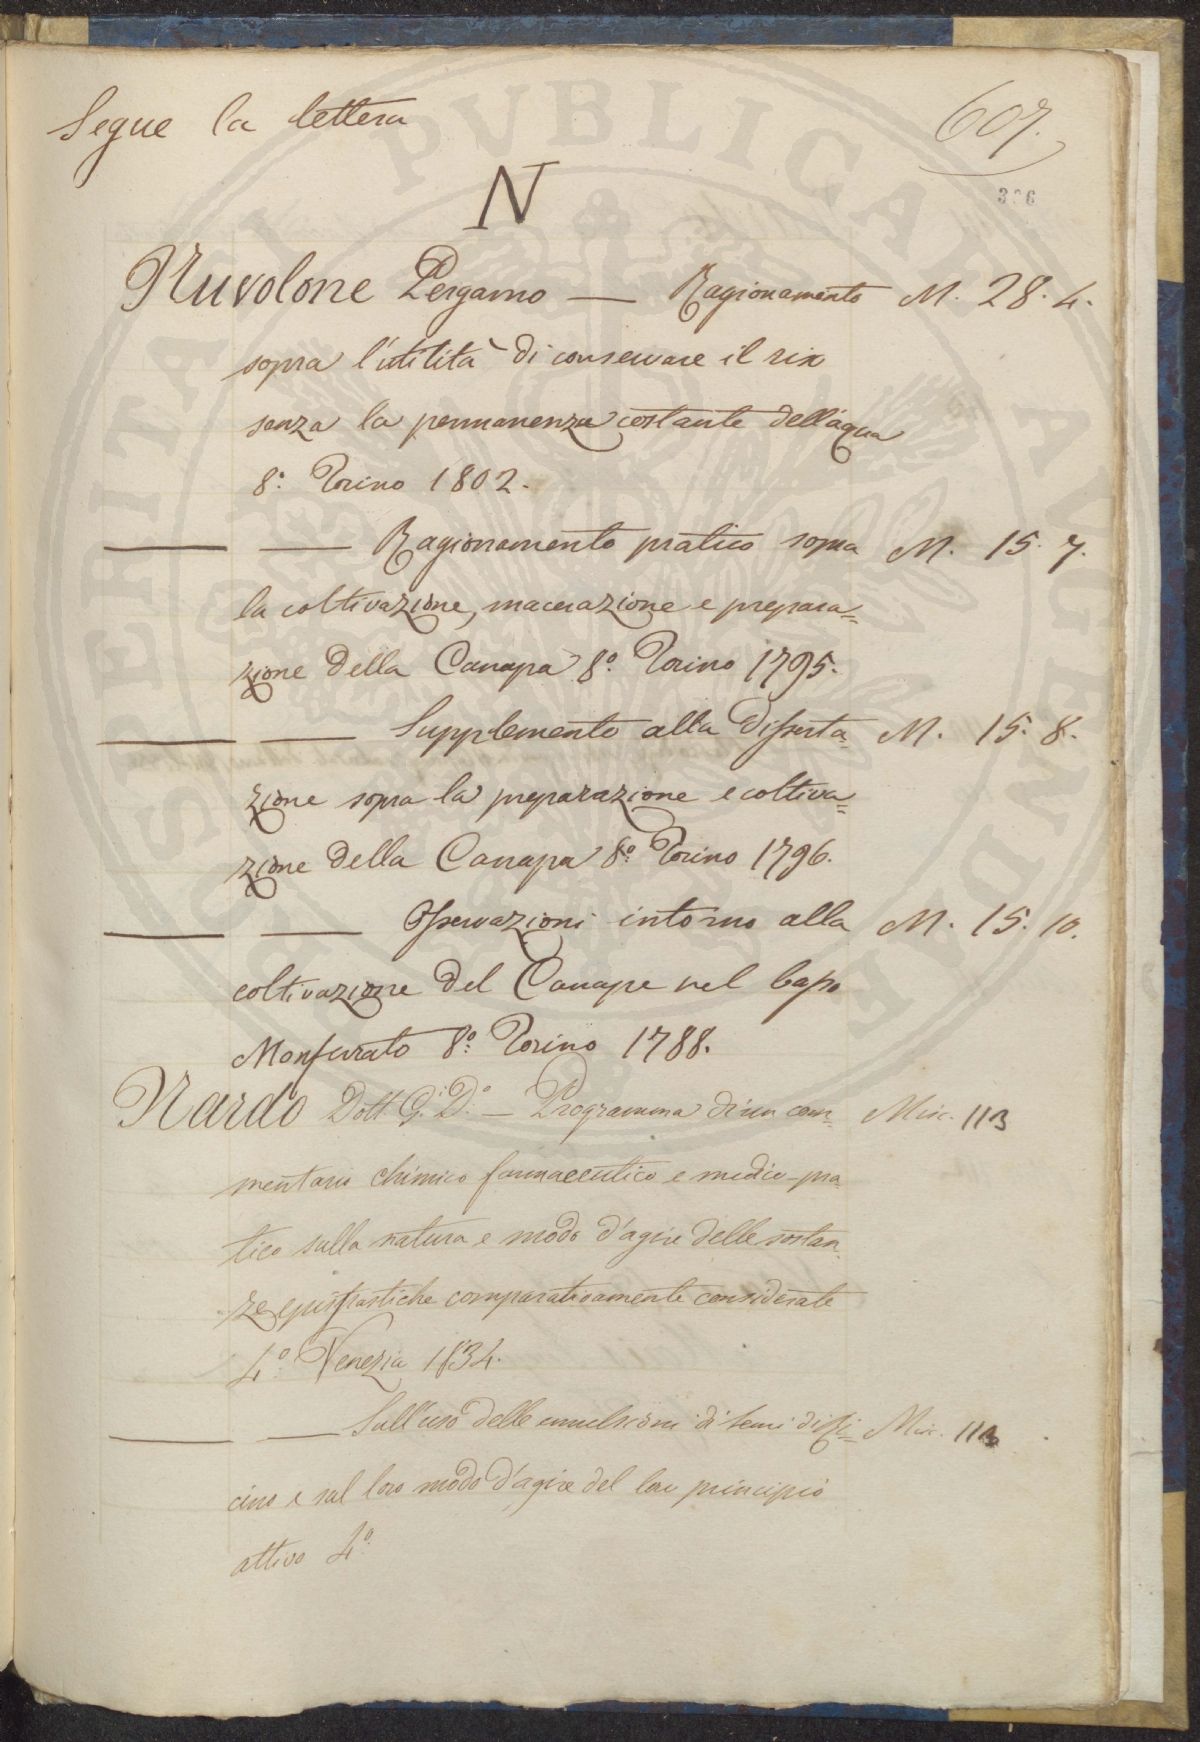 Segue la lettera
607.
N
306
Nuvolone Pergamo — Ragionamento M. 28. 4.
sopra l'utilità di conservare il riso
senza la permanenza costante dell'aqua
8.° Torino 1802.
— — Ragionamento pratico sopra M. 15. 7.
la coltivazione, macerazione e prepara=
zione della Canapa 8.° Torino 1795.
— — Supplemento alla disserta= M. 15. 8.
zione sopra la preparazione e coltiva=
zione della Canapa 8.° Torino 1796.
— — Osservazioni intorno alla M. 15. 10.
coltivazione del Canape nel basso
Monferrato 8.° Torino 1788.
Nardo Dott. G. D.° — Programma di un com= Misc. 113
mentario chimico farmaceutico e medico-pra=
tico sulla natura e modo d'agire delle sostan=
ze epispastiche comparativamente considerate
4.° Venezia 1834.
— — Sull'uso delle emulsioni di semi di Ri= Misc. 113
cino e sul loro modo d'agire del loro principio
attivo 4.°
PUBLICAE AUGENDAE PROSPERITATI